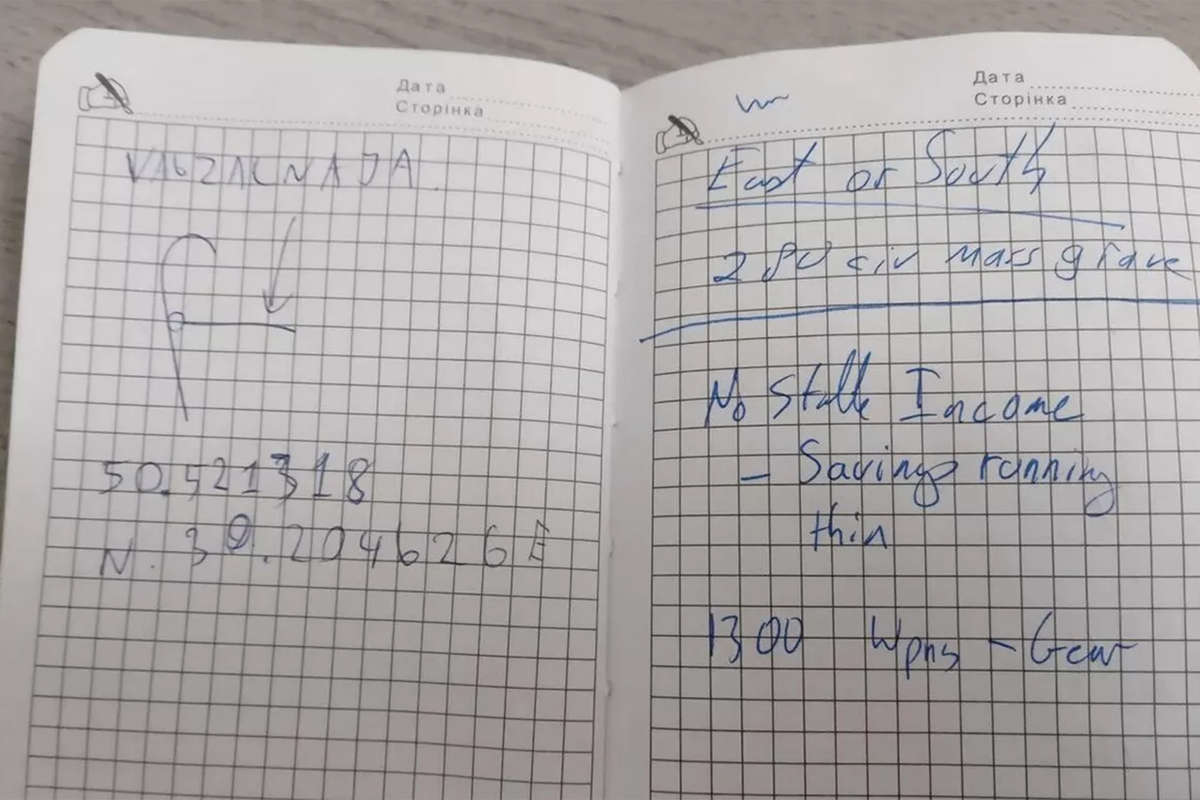 Дата
Сторінка
VAGZALNAJA.
50.521318
N. 30.204626 E
Дата
Сторінка
East or South
280 civ mass grave
No Stable Income
- Savings running
thin
1300 Wpns - Gear